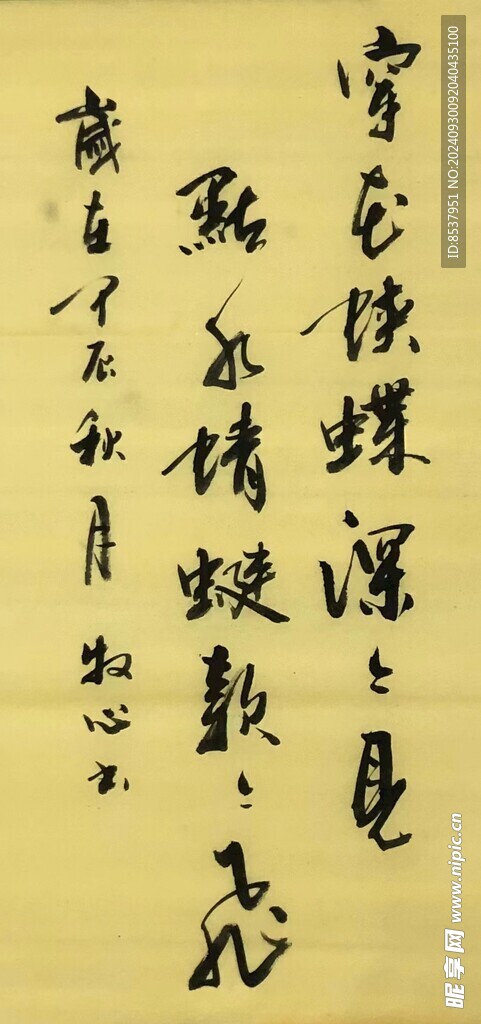 穿花蛺蝶深〻見
點水蜻蜓款〻飛
歲在甲辰秋月 牧心书
ID:8537951 NO:20240930092040435100
昵享网 www.nipic.cn